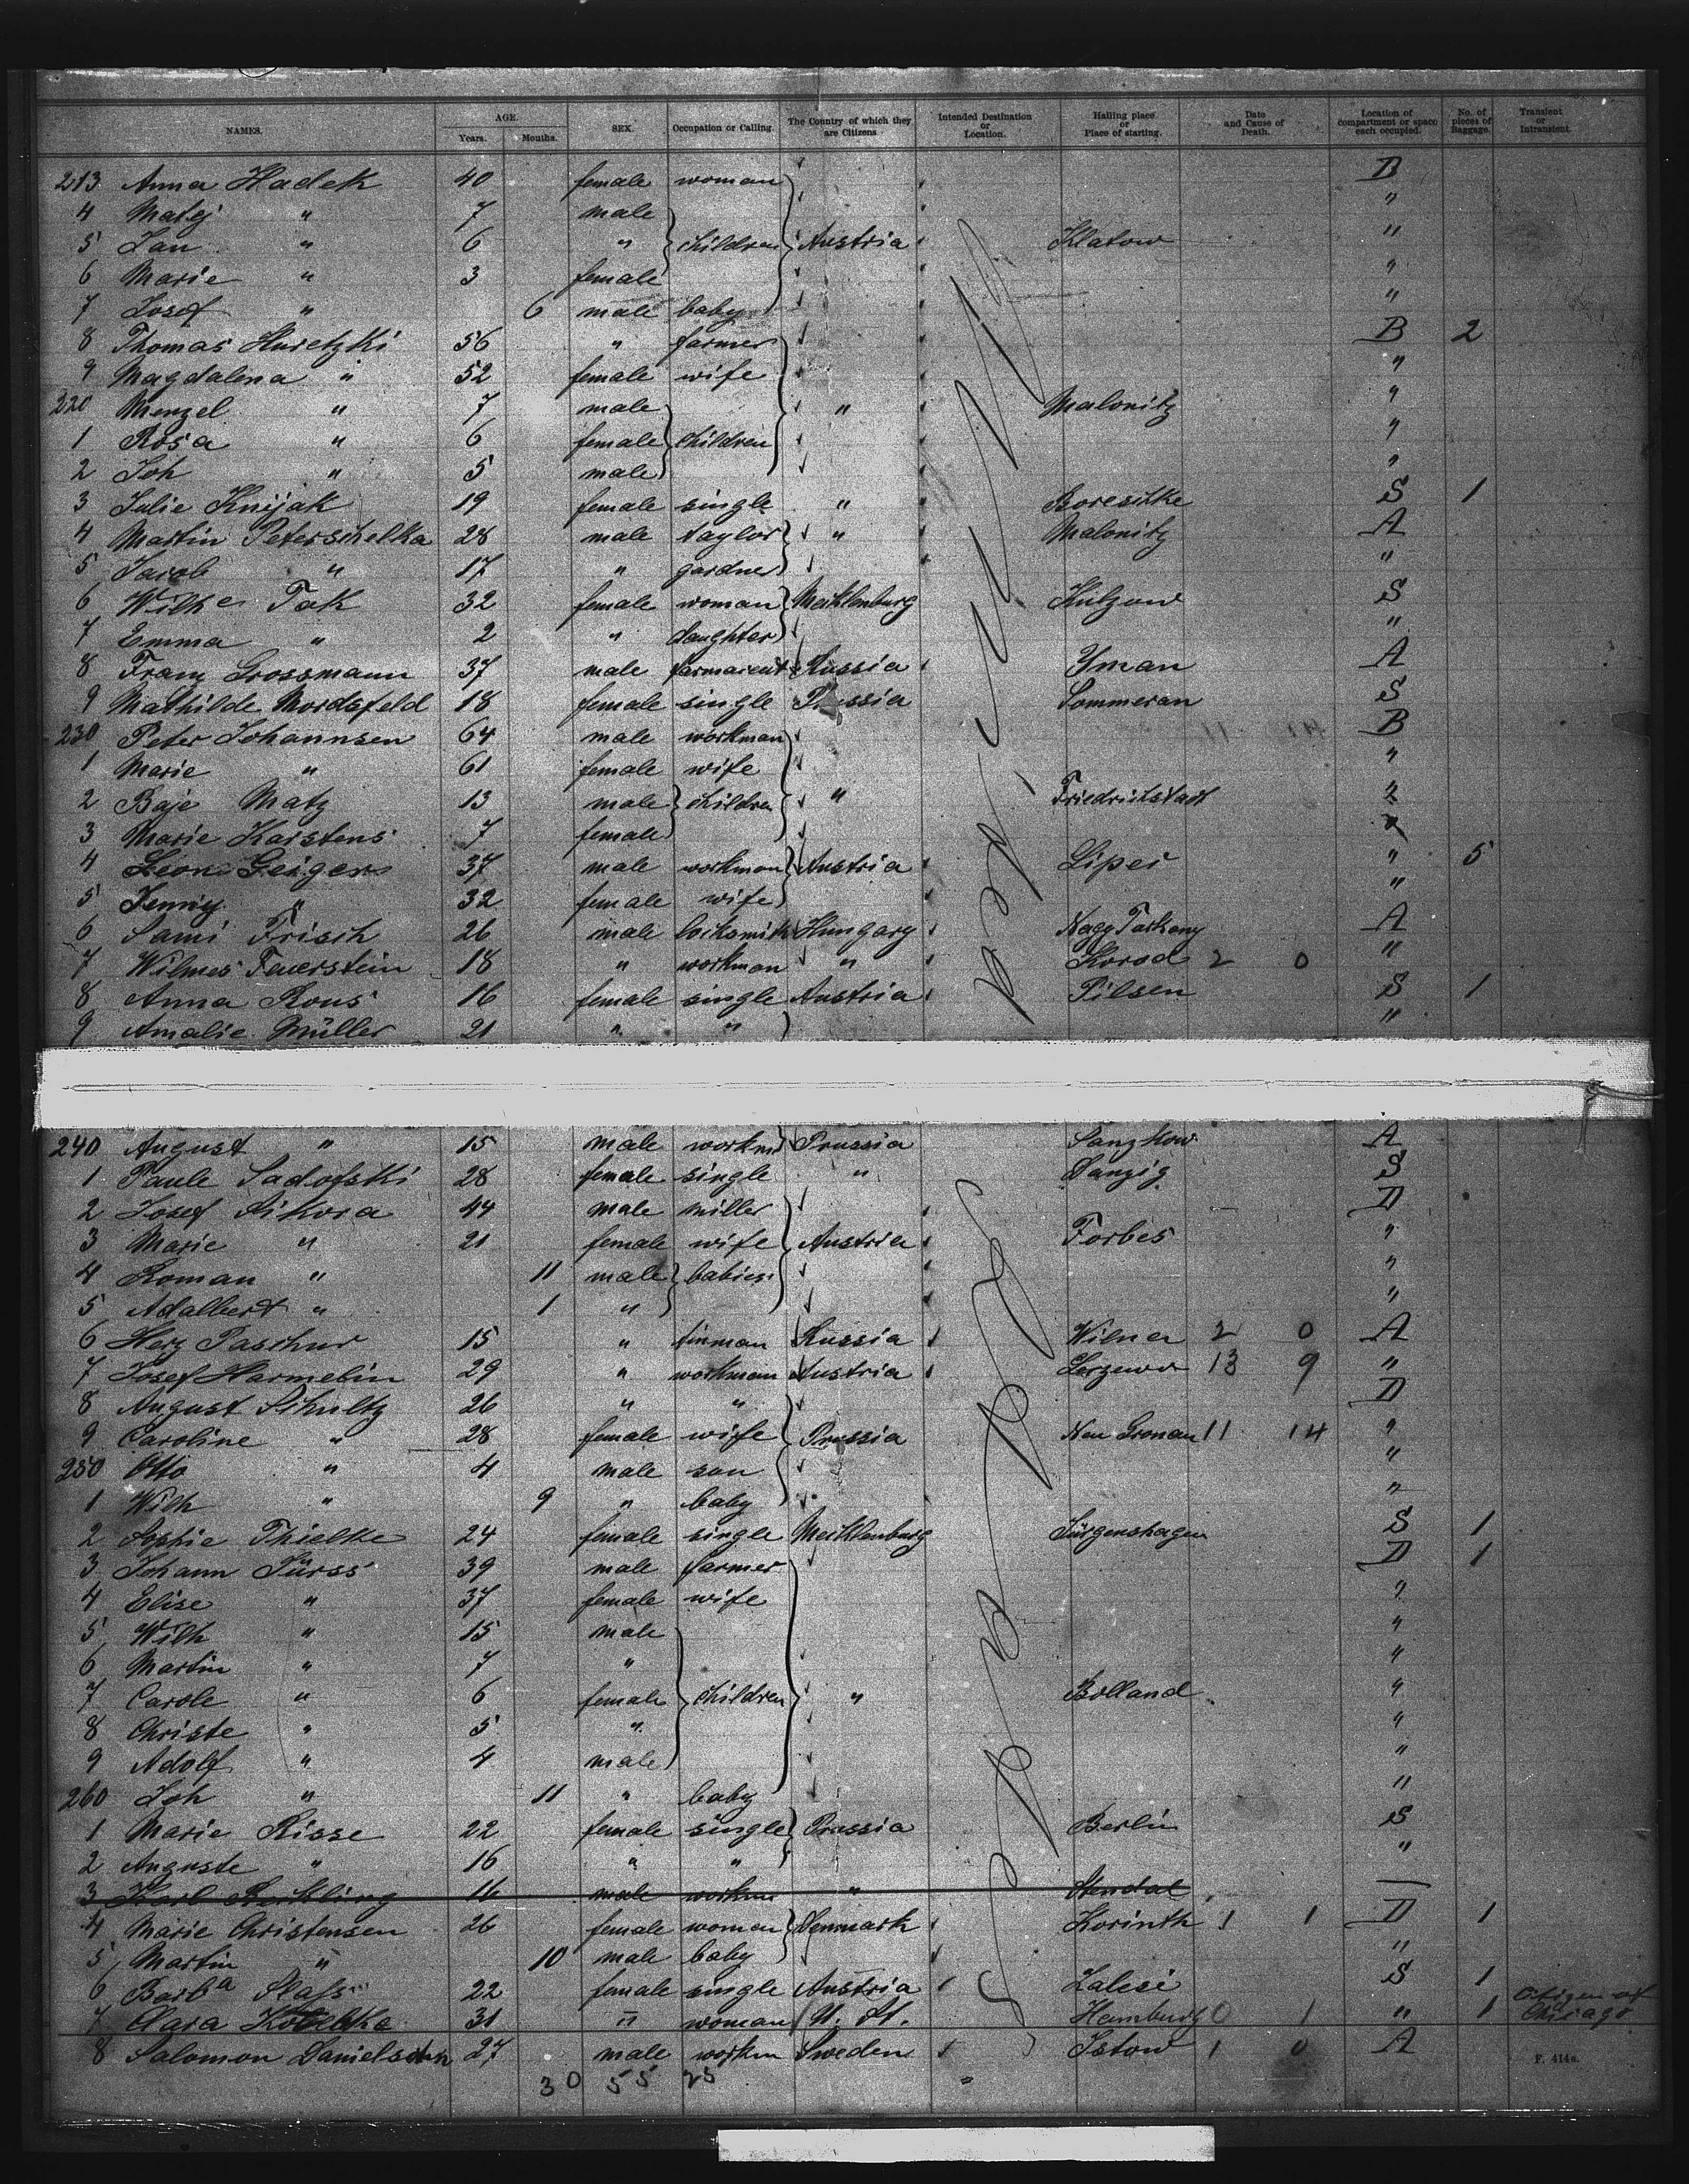 NAMES. AGE. Years. Months. SEX. Occupation or Calling. The Country of which they are Citizens Intended Destination or Location. Halling place or Place of starting. Date and Cause of Death. Location of compartment or space each occupied. No. of pieces of Baggage. Transient or Intransient.
213 Anna Hadek 40 female woman B
4 Matej " 7 male "
5 Jan " 6 " children Austria Klatow "
6 Marie " 3 female "
7 Josef " 6 male baby "
8 Thomas Huretzki 56 " farmer B 2
9 Magdalena " 52 female wife "
220 Menzel " 7 male " Malonitz "
1 Rosa " 6 female children "
2 Joh " 5 male "
3 Julie Knijak 19 female single " Boresitke S 1
4 Martin Peterschelka 28 male taylor " Malonitz A
5 Jacob " 17 " gardner "
6 Wilhe Tak 32 female woman Mecklenburg Kützow S
7 Emma " 2 " daughter "
8 Franz Grossmann 37 male Russia Yman A
9 Mathilde Mordsfeld 18 female single Prussia Sommerau S
230 Peter Johannsen 64 male workman B
1 Marie " 61 female wife "
2 Baje Matz 13 male children " Friedrichstadt "
3 Marie Karstens 7 female "
4 Leon Geiger 37 male workman Austria Lipei " 5
5 Jenny " 32 female wife "
6 Sami Frisch 26 male locksmith Hungary Nagy Tarkany A
7 Wilmos Feuerstein 18 " workman " Korod 2 0 "
8 Anna Rous 16 female single Austria Pilsen S 1
9 Amalie Müller 21 " " "
240 August " 15 male workm Prussia Sanzkow A
1 Paule Sadofski 28 female single " Danzig S
2 Josef Sikora 44 male miller D
3 Marie " 21 female wife Austria Forbes "
4 Roman " 11 male babies "
5 Adalbert " 1 " "
6 Herz Paschur 15 " tinman Russia Wilna 2 0 A
7 Josef Harmelin 29 " workman Austria 13 9 "
8 August Schultz 26 " " D
9 Caroline " 28 female wife Prussia Neu Gronau 11 14 "
250 Otto " 4 male son "
1 Wilh " 9 " baby "
2 Sophie Thielke 24 female single Mecklenburg Jürgenshagen S 1
3 Johann Türss 39 male farmer D 1
4 Elise " 37 female wife "
5 Wilh " 15 male "
6 Martin " 7 " "
7 Carole " 6 female children " Bolland "
8 Christe " 5 " "
9 Adolf " 4 male "
260 Joh " 11 " baby "
1 Marie Risse 22 female single Prussia Berlin S
2 Auguste " 16 " " "
3 Karl 16 male workm " Stendal
4 Marie Christensen 26 female woman Denmark Korinth 1 1 D 1
5 Martin " 10 male baby "
6 Barba Slass 22 female single Austria Zalesi S 1
7 Clara 31 " woman U. St. Hamburg 0 1 " 1 Citizen of Chicago
8 Salomon Danielsohn 27 male workm Sweden Istow 1 0 A
F. 414a.
30 55 25